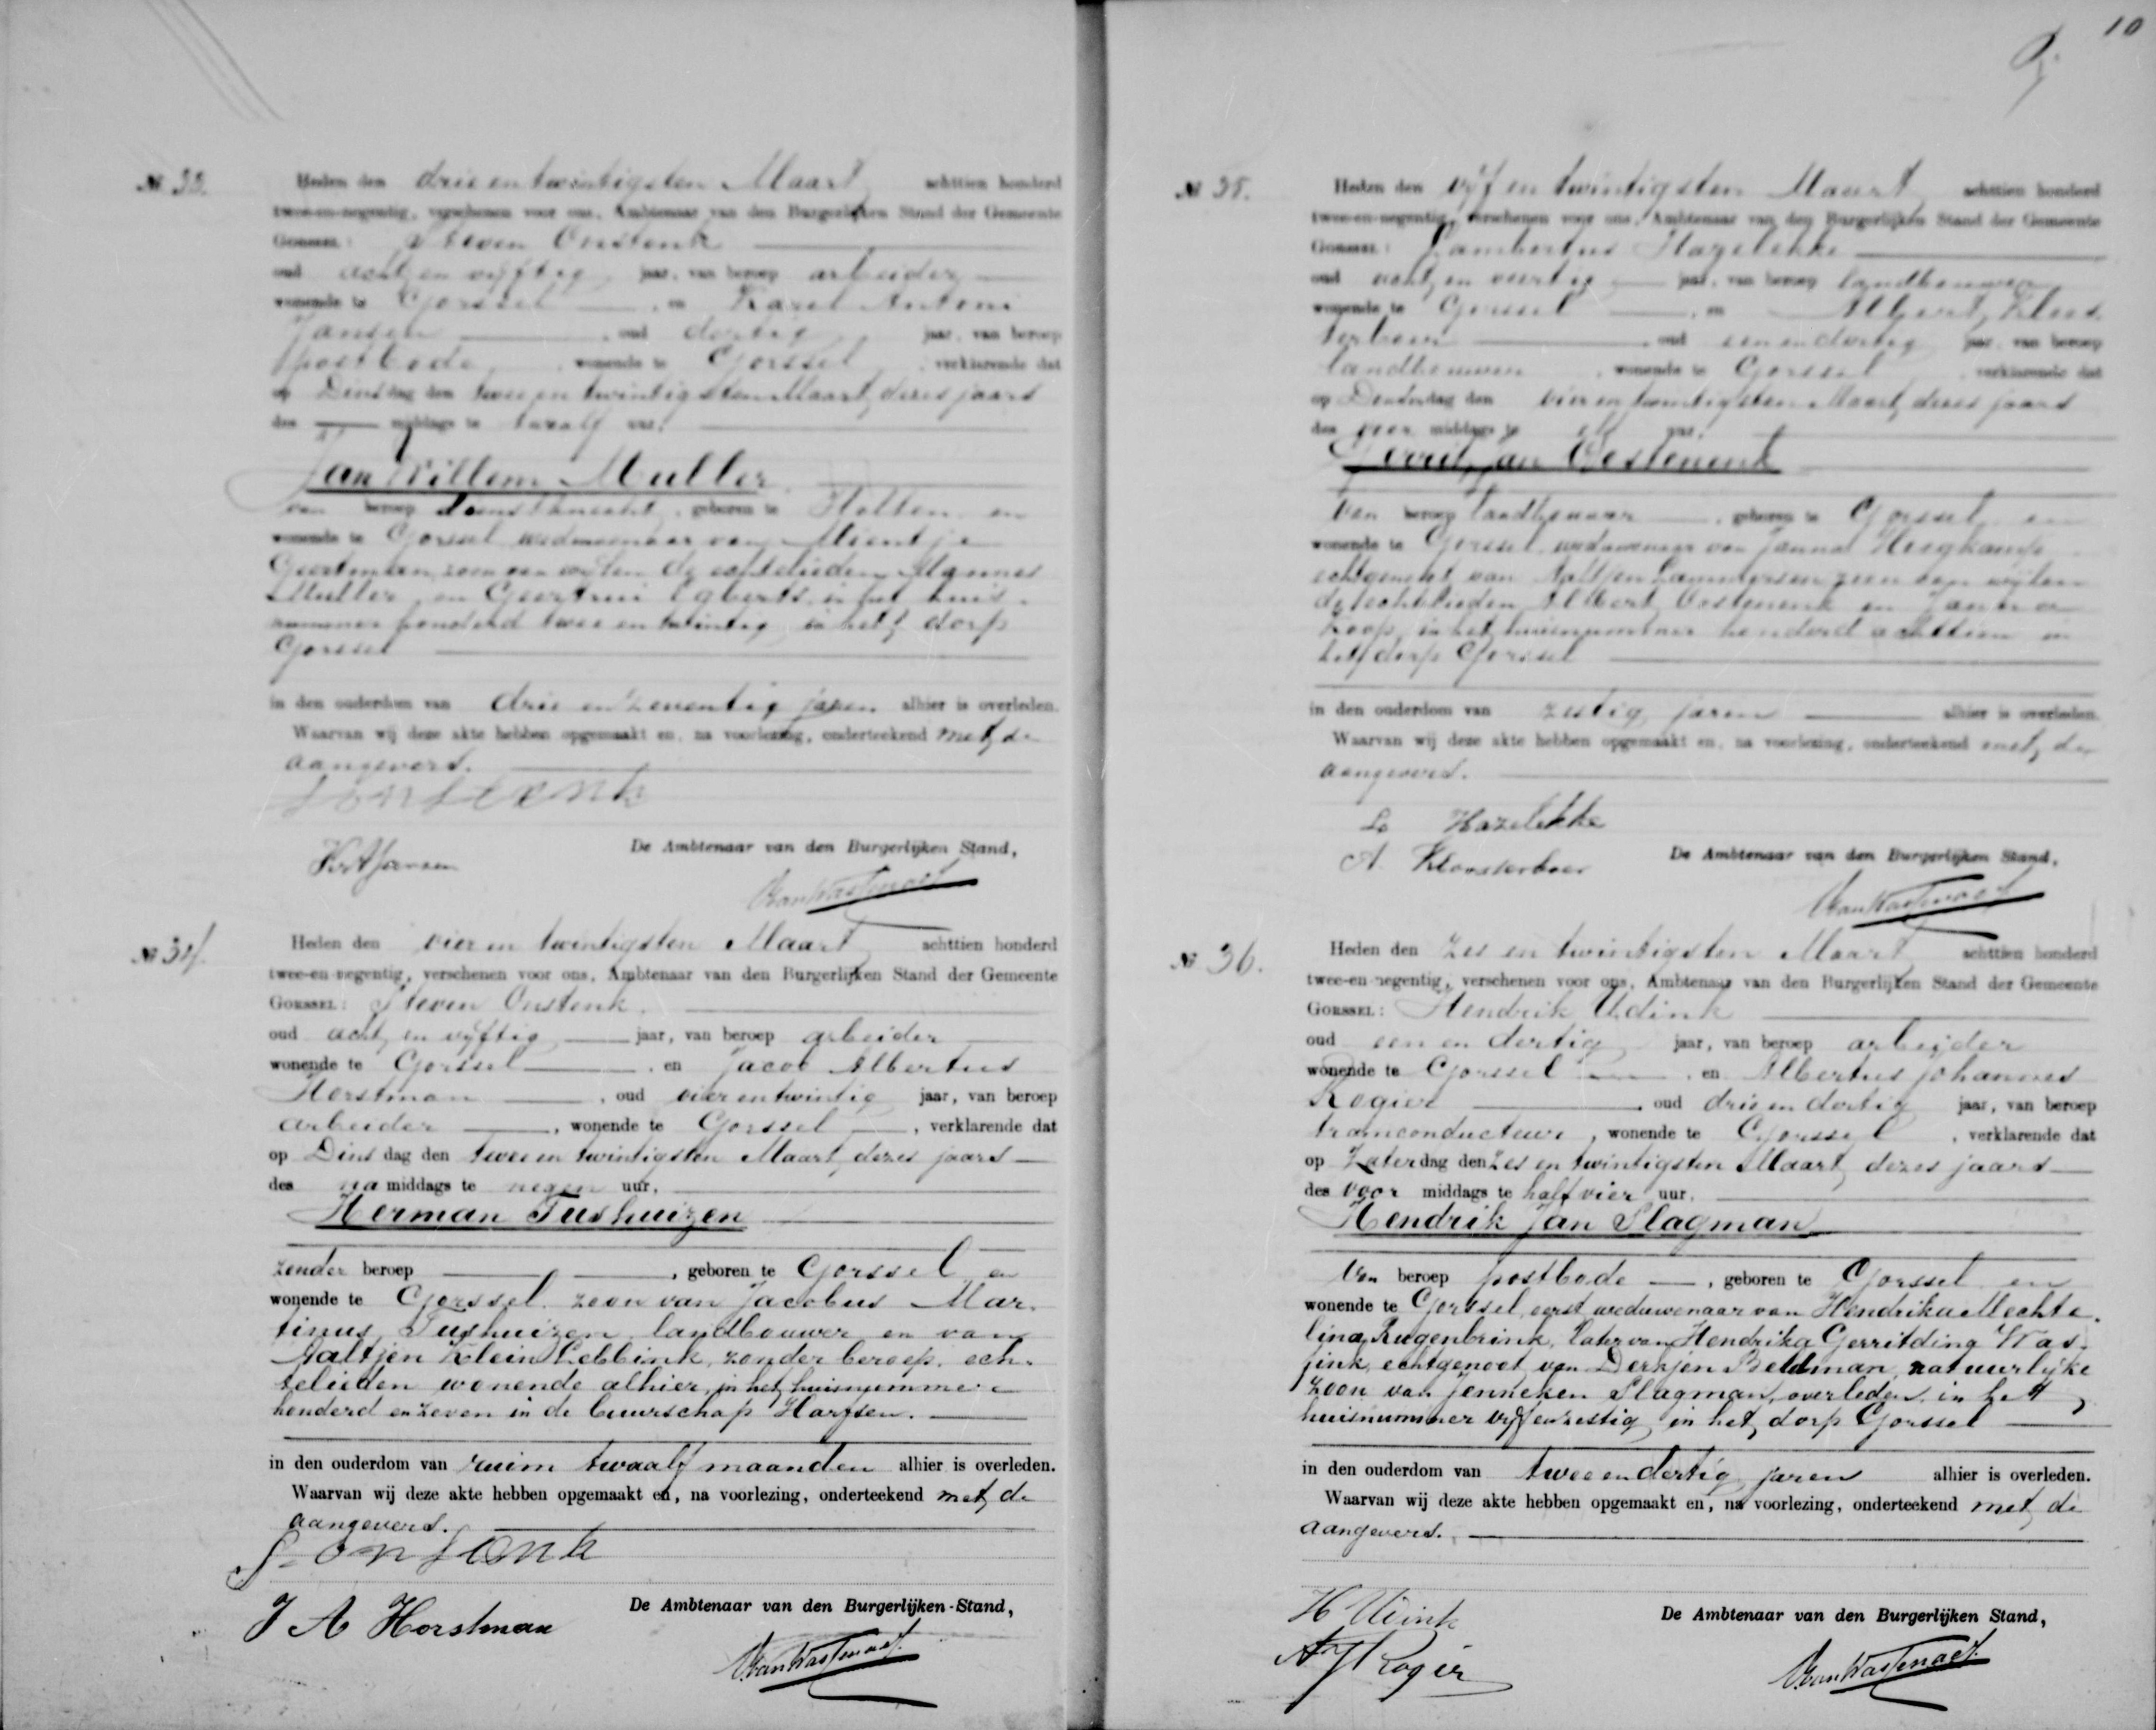 10
№ 33.
Heden den drie en twintigsten Maart achttien honderd
twee-en-negentig, verschenen voor ons, Ambtenaar van den Burgerlijken Stand der Gemeente
GORSSEL: Steven Onstenk
oud acht en vijftig jaar, van beroep arbeider
wonende te Gorssel, en Karel Antoni
Jansen, oud dertig jaar, van beroep
postbode, wonende te Gorssel, verklarende dat
op Dinsdag den twee en twintigsten Maart dezes jaars
des middags te twaalf uur,
Jan Willem Muller
van beroep dienstknecht, geboren te Holten en
wonende te Gorssel weduwenaar van Mientje
zoon van wijlen de echtelieden Mannes
Muller en Geertrui Egberts in het huis-
nummer honderd twee en twintig in het dorp
Gorssel
in den ouderdom van drie en zeventig jaren alhier is overleden.
Waarvan wij deze akte hebben opgemaakt en, na voorlezing, onderteekend met de
aangevers.
S Onstenk
K A Jansen
De Ambtenaar van den Burgerlijken Stand,
№ 34.
Heden den vier en twintigsten Maart achttien honderd
twee-en-negentig, verschenen voor ons, Ambtenaar van den Burgerlijken Stand der Gemeente
GORSSEL: Steven Onstenk.
oud acht en vijftig jaar, van beroep arbeider
wonende te Gorssel, en Jacob Albertus
Horstman, oud vier en twintig jaar, van beroep
arbeider, wonende te Gorssel, verklarende dat
op Dinsdag den twee en twintigsten Maart dezes jaars
des na middags te negen uur,
Herman Tushuizen
zonder beroep, geboren te Gorssel en
wonende te Gorssel zoon van Jacobus Mar-
tinus Tushuizen, landbouwer en van
Aaltjen Klein Lebbink, zonder beroep, ech-
telieden wonende alhier, in het huisnummer
honderd en zeven in de buurschap Harfsen.
in den ouderdom van ruim twaalf maanden alhier is overleden.
Waarvan wij deze akte hebben opgemaakt en, na voorlezing, onderteekend met de
aangevers.
S. Onstenk
J A Horstman
De Ambtenaar van den Burgerlijken Stand,
№ 35.
Heden den vijf en twintigsten Maart achttien honderd
twee-en-negentig, verschenen voor ons, Ambtenaar van den Burgerlijken Stand der Gemeente
GORSSEL: Lambertus Hazelekke
oud acht en veertig jaar, van beroep landbouwer
wonende te Gorssel, en Albert Kloos-
terboer, oud een en dertig jaar, van beroep
landbouwer, wonende te Gorssel, verklarende dat
op Donderdag den vier en twintigsten Maart dezes jaars
des voor middags te elf uur,
Gerrit Jan Oostenenk
van beroep landbouwer, geboren te Gorssel en
wonende te Gorssel, weduwenaar van Janna
echtgenoot van Aaltjen Lammersen zoon van wijlen
de echtelieden Albert Oostenenk en Janna
Koop, in het huisnummer honderd achttien in
het dorp Gorssel
in den ouderdom van zestig jaren alhier is overleden.
Waarvan wij deze akte hebben opgemaakt en, na voorlezing, onderteekend met de
aangevers.
L Hazelekke
A. Kloosterboer
De Ambtenaar van den Burgerlijken Stand,
№ 36.
Heden den zes en twintigsten Maart achttien honderd
twee-en-negentig, verschenen voor ons, Ambtenaar van den Burgerlijken Stand der Gemeente
GORSSEL: Hendrik Udink
oud een en dertig jaar, van beroep arbeider
wonende te Gorssel, en Albertus Johannes
Rogier, oud drie en dertig jaar, van beroep
tramconducteur, wonende te Gorssel, verklarende dat
op Zaterdag den zes en twintigsten Maart dezes jaars
des voor middags te half vier uur,
Hendrik Jan Slagman
van beroep postbode, geboren te Gorssel en
wonende te Gorssel, eerst weduwenaar van Hendrika Mechte-
lina Rugenbrink, later van Hendrika Gerritding Was-
sink, echtgenoot van Derkjen Beldman, natuurlijke
zoon van Jenneken Slagman, overleden, in het
huisnummer vijf en zestig in het dorp Gorssel
in den ouderdom van twee en dertig jaren alhier is overleden.
Waarvan wij deze akte hebben opgemaakt en, na voorlezing, onderteekend met de
aangevers.
H Udink
A J Rogier
De Ambtenaar van den Burgerlijken Stand,